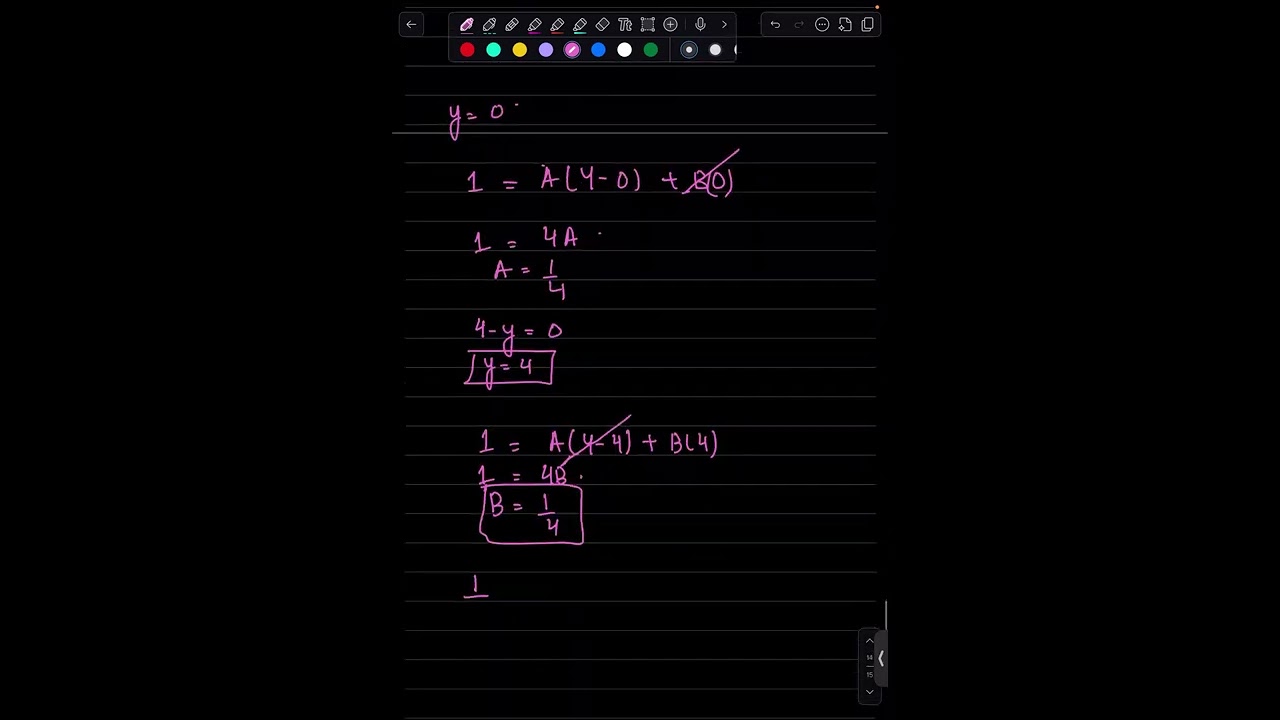 y = 0
1 = A(4-0) + B(0)
1 = 4A
A = 1/4
4-y = 0
y = 4
1 = A(4-4) + B(4)
1 = 4B
B = 1/4
1
14
15